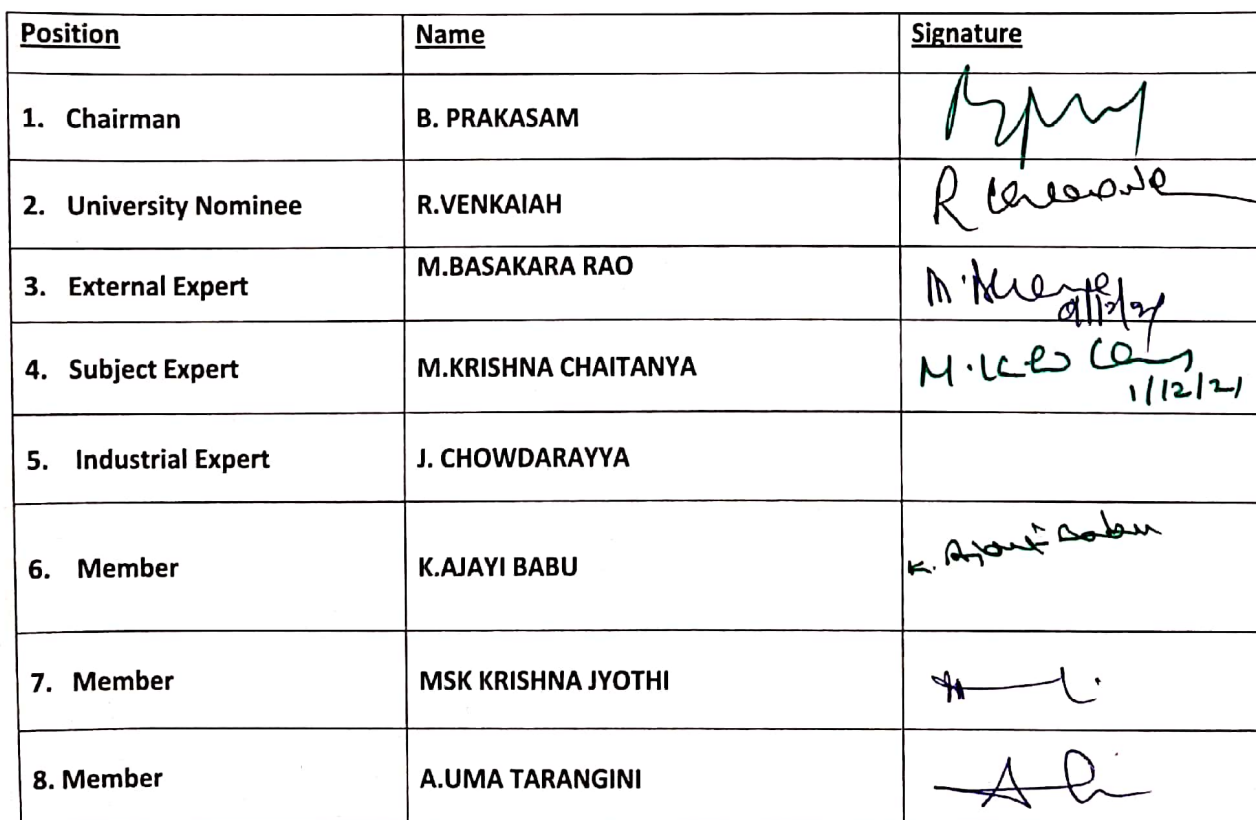 Position Name Signature
1. Chairman B. PRAKASAM
2. University Nominee R.VENKAIAH R
3. External Expert M.BASAKARA RAO
4. Subject Expert M.KRISHNA CHAITANYA
1/12/21
5. Industrial Expert J. CHOWDARAYYA
6. Member K.AJAYI BABU K. Babu
7. Member MSK KRISHNA JYOTHI
8. Member A.UMA TARANGINI